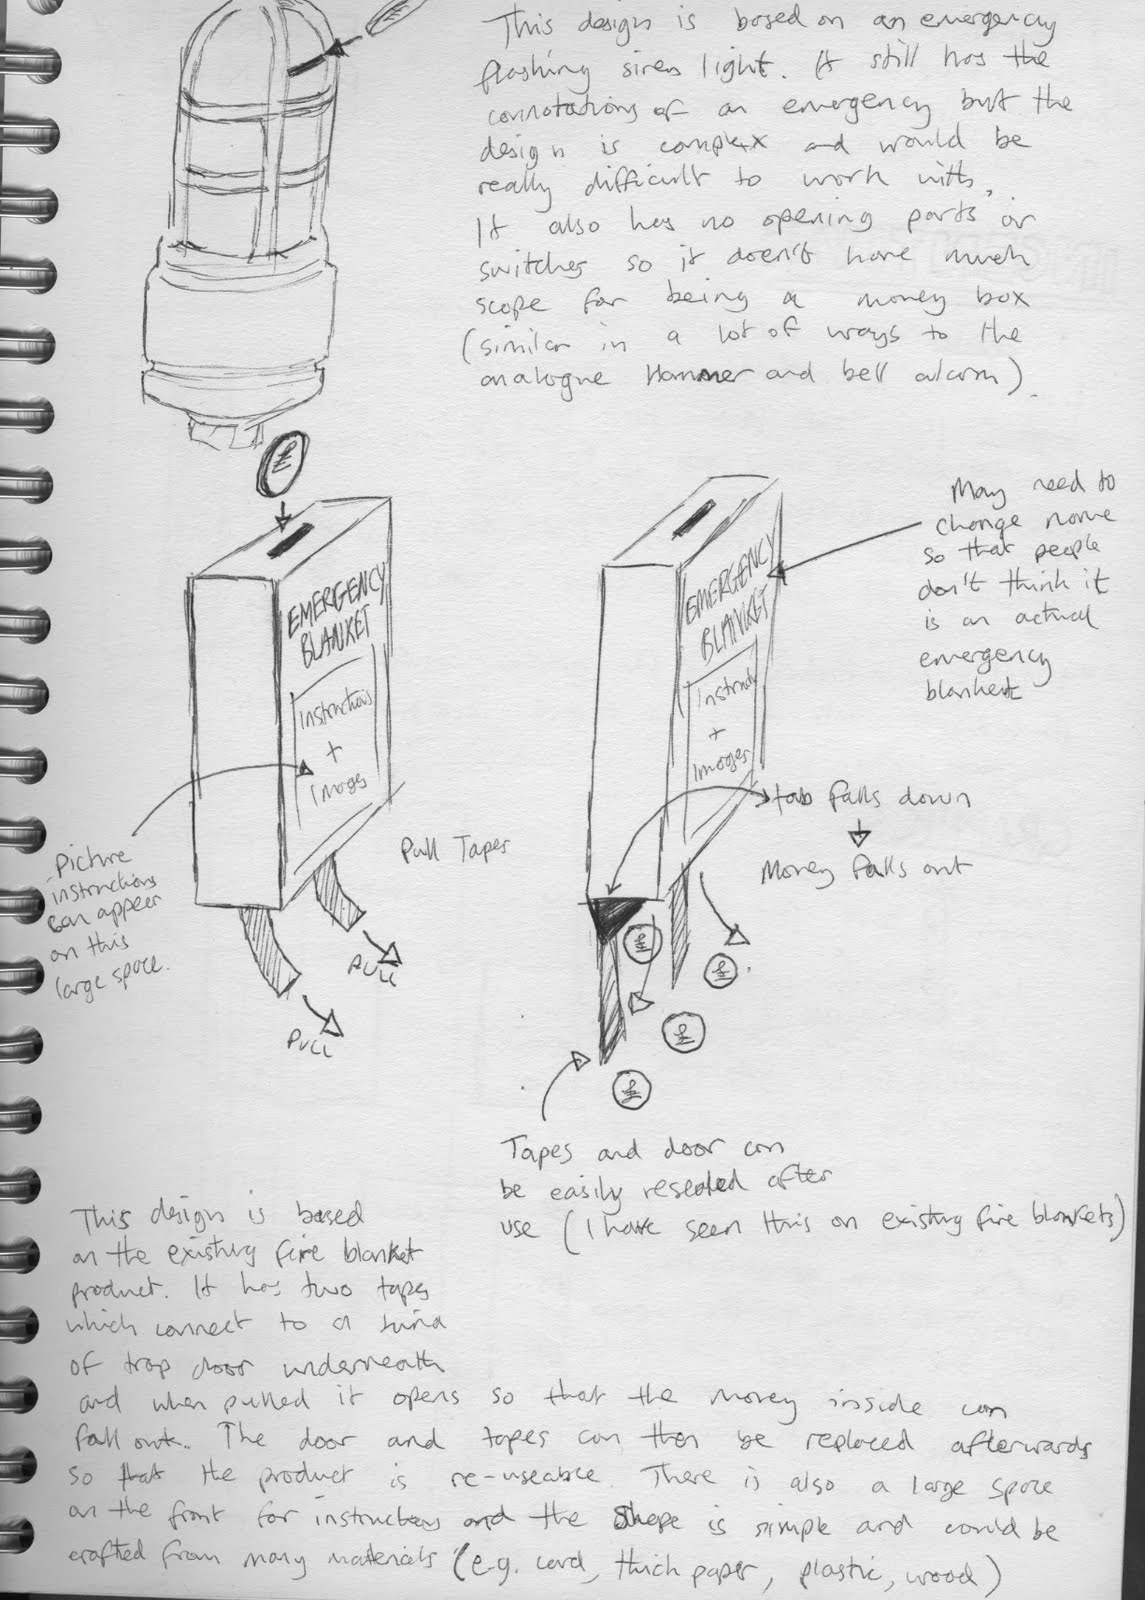 This design is based on an emergency
flashing siren light. It still has the
connotations of an emergency but the
design is complex and would be
really difficult to work with.
It also has no opening parts or
switches so it doesn't have much
scope for being a money box
(similar in a lot of ways to the
analogue Hammer and bell alarm).
£
EMERGENCY
BLANKET
Instructions
+
Images
Picture
instructions
can appear
on this
large space.
Pull Tapes
PULL
PULL
EMERGENCY
BLANKET
Instructi
+
Images
May need to
change name
so that people
don't think it
is an actual
emergency
blanket
tab falls down
Money falls out
£
£
£
£
Tapes and door can
be easily resealed after
use (I have seen this on existing fire blankets)
This design is based
on the existing fire blanket
product. It has two tapes
which connect to a kind
of trap door underneath
and when pulled it opens so that the money inside can
fall out. The door and tapes can then be replaced afterwards
so that the product is re-useable. There is also a large space
on the front for instructions and the shape is simple and could be
crafted from many materials (e.g. card, thick paper, plastic, wood)